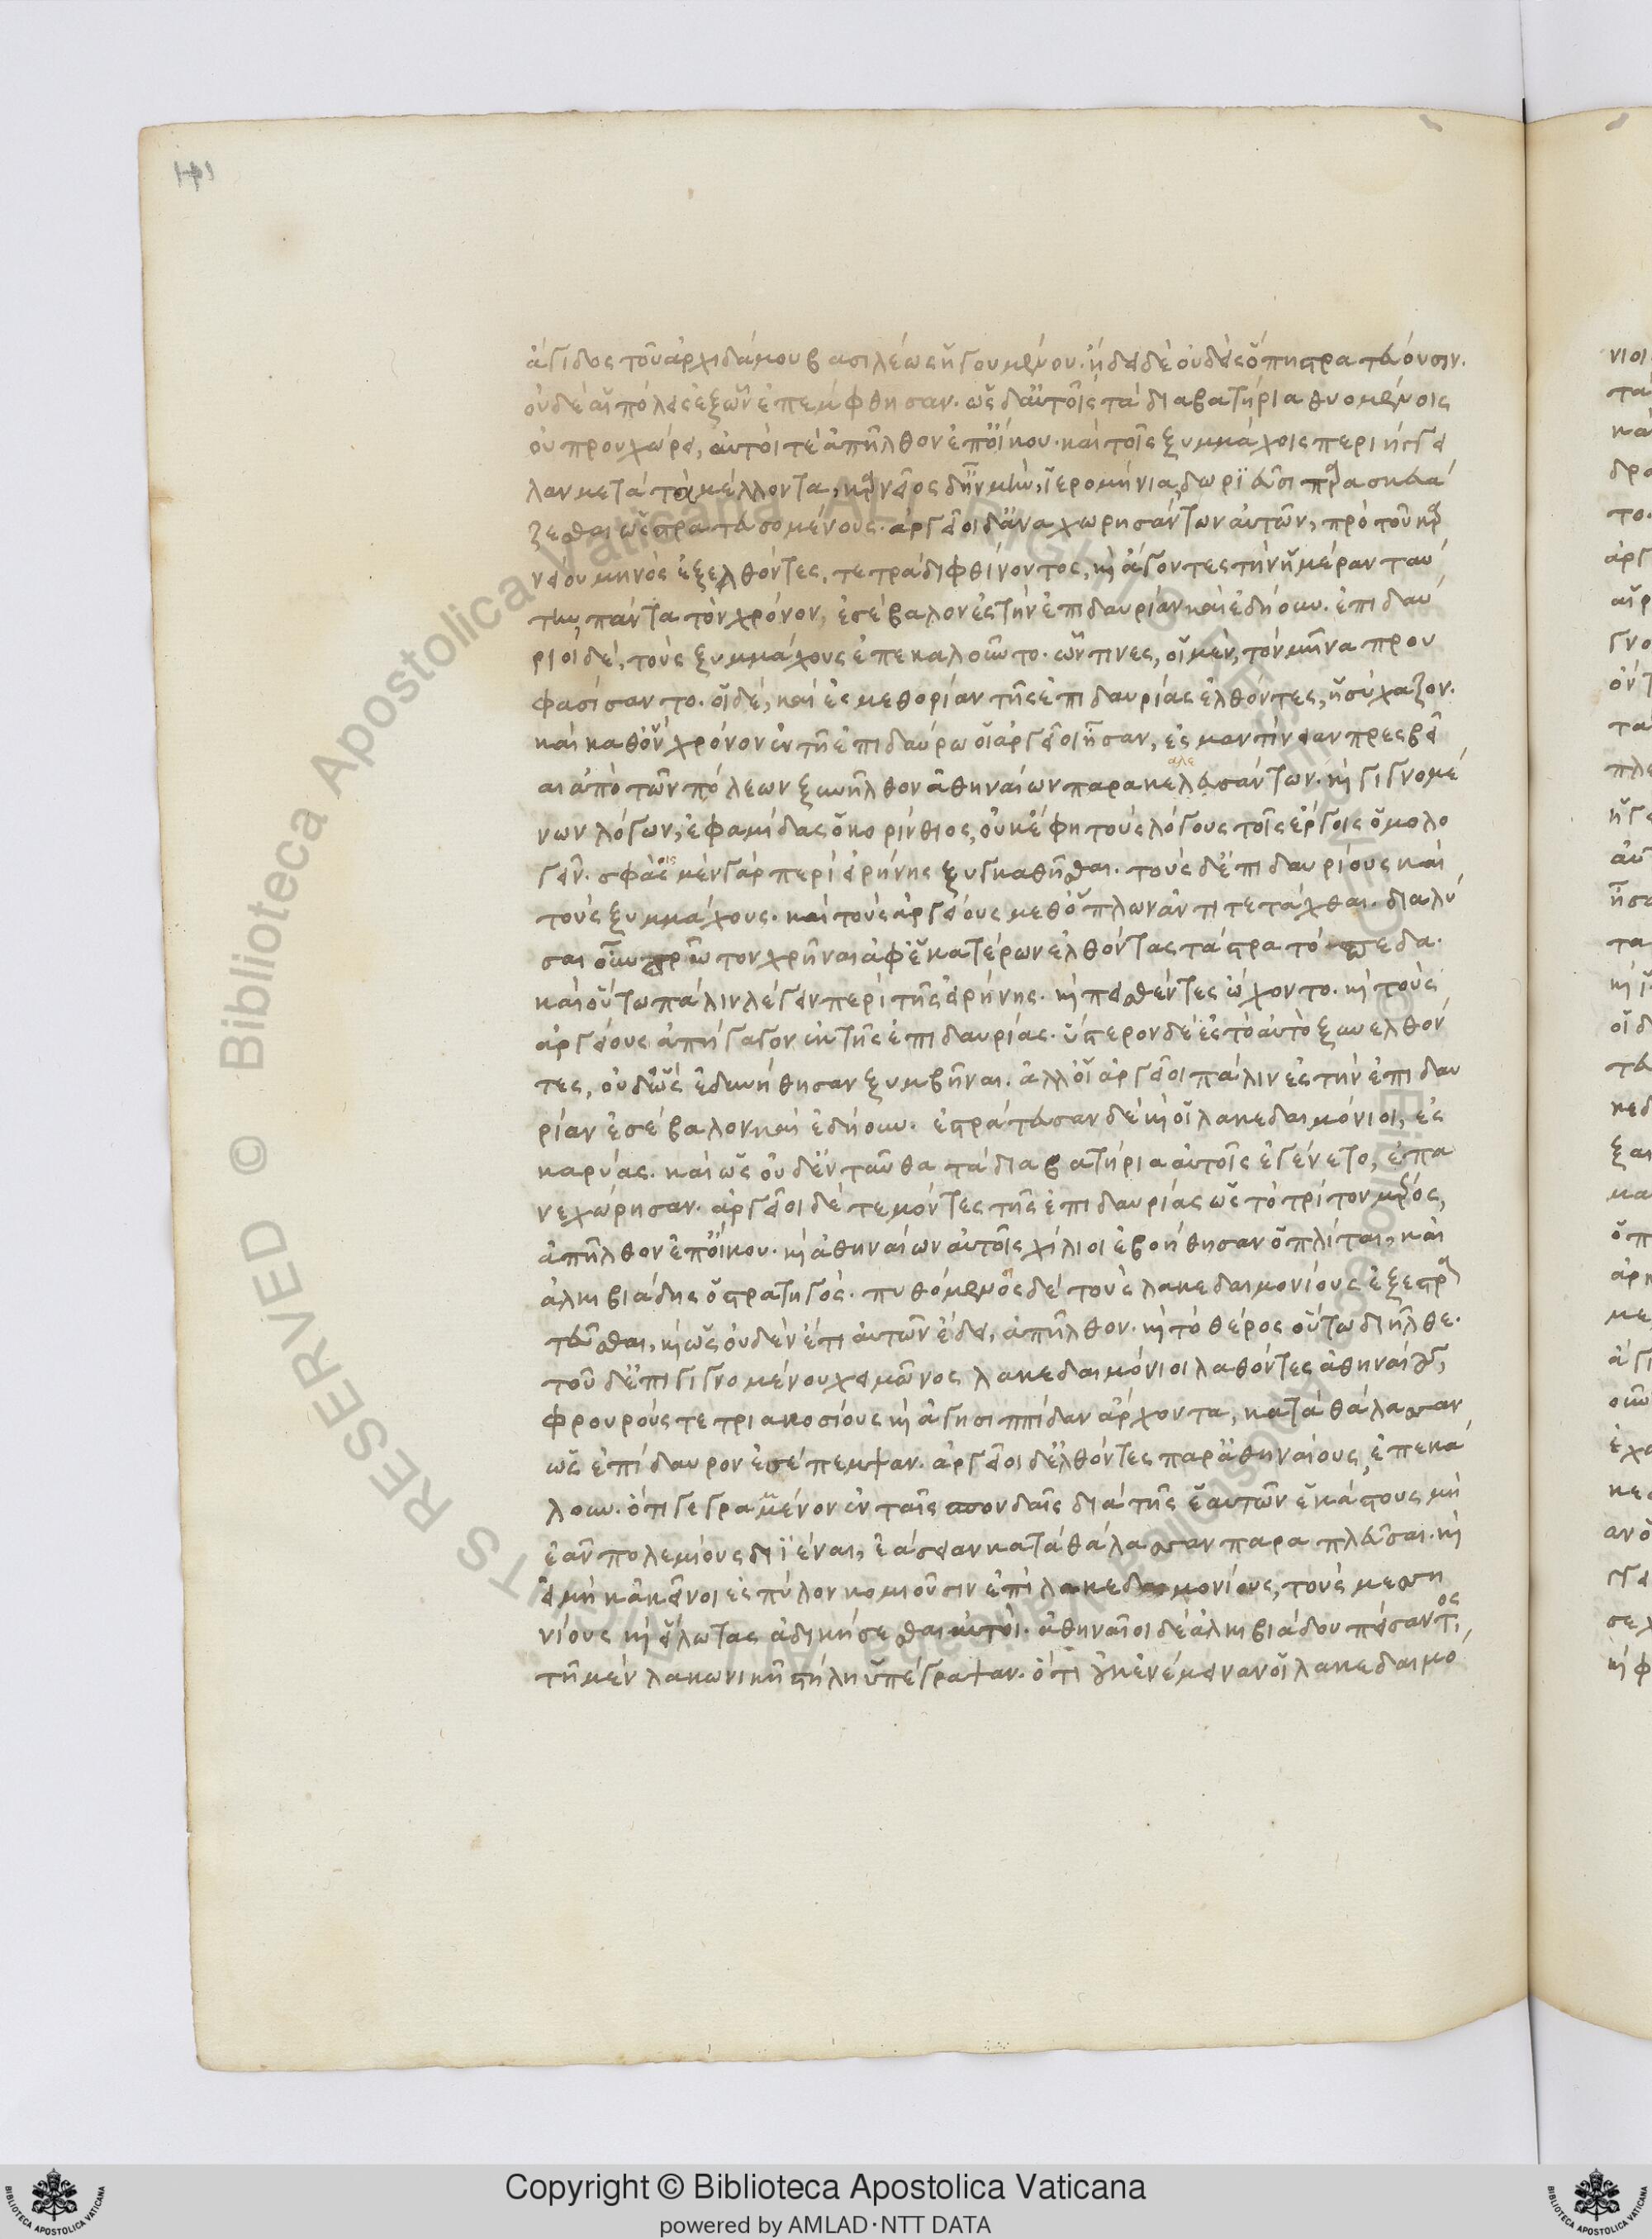 ἄγιδος τοῦ ἀρχιδάμου βασιλέως ἡγουμένου. ἤδει δὲ οὐδεὶς ὅπη στρατεύουσιν.
οὐδὲ αἱ πόλεις ἐξ ὧν ἐπέμφθησαν. ὡς δ' αὐτοῖς τὰ διαβατήρια θυομένοις
οὐ προυχώρει, αὐτοί τε ἀπῆλθον ἐπ' οἴκου. καὶ τοῖς ξυμμάχοις περιήγγει
λαν μετὰ τὸν μέλλοντα, καρνεῖος δ' ἦν μὴν, ἱερομήνια δωριεῦσι παρασκευά
ζεσθαι ὡς στρατευσομένους. ἀργεῖοι δ' ἀναχωρησάντων αὐτῶν, πρὸ τοῦ καρ
νείου μηνὸς ἐξελθόντες, τετράδι φθίνοντος, καὶ ἄγοντες τὴν ἡμέραν ταύ
την, πάντα τὸν χρόνον, ἐσέβαλον ἐς τὴν ἐπιδαυρίαν καὶ ἐδήουν. ἐπιδαύ
ριοι δὲ, τοὺς ξυμμάχους ἐπεκαλοῦντο. ὧν τινες, οἱ μὲν, τὸν μῆνα πρου
φασίσαντο. οἱ δὲ, καὶ ἐς μεθορίαν τῆς ἐπιδαυρίας ἐλθόντες, ἡσύχαζον.
καὶ καθ' ὃν χρόνον ἐν τῆ ἐπιδαύρω οἱ ἀργεῖοι ἦσαν, ἐς μαντίνειαν πρεσβεῖ
αι ἀπὸ τῶν πόλεων ξυνῆλθον ἀθηναίων παρακελευσάντων. καὶ γιγνομέ
νων λόγων, ἐφαμίδας ὁ κορίνθιος, οὐκ ἔφη τοὺς λόγους τοῖς ἔργοις ὁμολο
γεῖν. σφᾶς μὲν γὰρ περὶ εἰρήνης ξυγκαθῆσθαι. τοὺς δ' ἐπιδαυρίους καὶ
τοὺς ξυμμάχους. καὶ τοὺς ἀργείους μεθ' ὅπλων ἀντιτετάχθαι. διαλύ
σαι οὖν πρῶτον χρῆναι ἀφ' ἑκατέρων ἐλθόντας τὰ στρατόπεδα.
καὶ οὕτω πάλιν λέγειν περὶ τῆς εἰρήνης. καὶ πεισθέντες ὤχοντο. καὶ τοὺς
ἀργείους ἀπήγαγον ἐκ τῆς ἐπιδαυρίας. ὕστερον δὲ ἐς τὸ αὐτὸ ξυνελθόν
τες, οὐδ' ὣς ἐδυνήθησαν ξυμβῆναι. ἀλλ' οἱ ἀργεῖοι πάλιν ἐς τὴν ἐπιδαυ
ρίαν ἐσέβαλον καὶ ἐδήουν. ἐστράτευσαν δὲ καὶ οἱ λακεδαιμόνιοι, ἐς
καρύας. καὶ ὡς οὐδ' ἐνταῦθα τὰ διαβατήρια αὐτοῖς ἐγένετο, ἐπα
νεχώρησαν. ἀργεῖοι δὲ τεμόντες τῆς ἐπιδαυρίας ὡς τὸ τρίτον μέρος,
ἀπῆλθον ἐπ' οἴκου. καὶ ἀθηναίων αὐτοῖς χίλιοι ἐβοήθησαν ὁπλίται, καὶ
ἀλκιβιάδης ὁ στρατηγός. πυθόμενος δὲ τοὺς λακεδαιμονίους ἐξεστρα
τεῦσθαι, καὶ ὡς οὐδὲν ἔτι αὐτῶν ἔδει, ἀπῆλθον. καὶ τὸ θέρος οὕτω διῆλθε.
τοῦ δ' ἐπιγιγνομένου χειμῶνος λακεδαιμόνιοι λαθόντες ἀθηναίους,
φρουρούς τε τριακοσίους καὶ ἀγησιππίδαν ἄρχοντα, κατὰ θάλασσαν
ὡς ἐπίδαυρον ἐσέπεμψαν. ἀργεῖοι δ' ἐλθόντες παρ' ἀθηναίους, ἐπεκά
λουν. ὅτι γεγραμμένον ἐν ταῖς σπονδαῖς διὰ τῆς ἑαυτῶν ἑκάστους μὴ
ἐᾶν πολεμίους διϊέναι, ἐάσειαν κατὰ θάλασσαν παραπλεῦσαι. καὶ
εἰ μὴ κἀκεῖνοι ἐς πύλον κομιοῦσιν ἐπὶ λακεδαιμονίους, τοὺς μεσση
νίους καὶ εἵλωτας ἀδικήσεσθαι αὐτοί. ἀθηναῖοι δὲ ἀλκιβιάδου πείσαντος,
τῆ μὲν λακωνικῆ στήλη ὑπέγραψαν. ὅτι οὐκ ἐνέμειναν οἱ λακεδαιμό
Copyright © Biblioteca Apostolica Vaticana
powered by AMLAD·NTT DATA